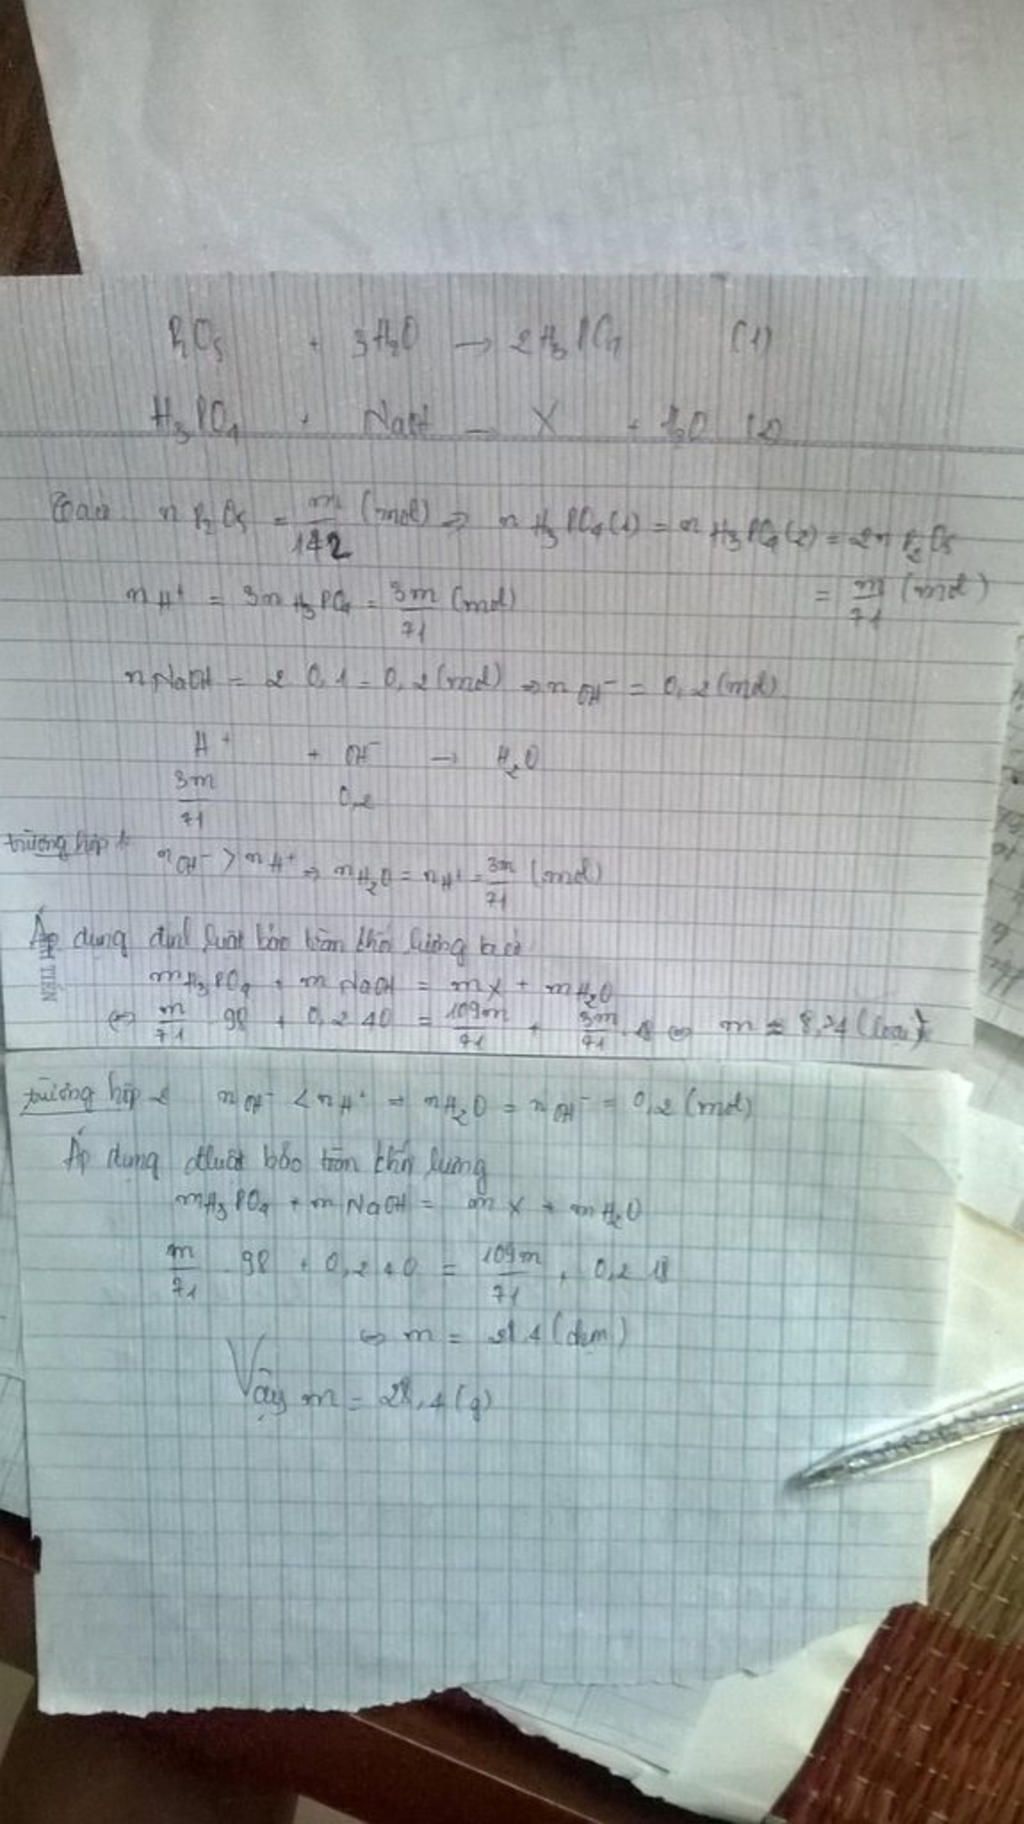 P₂O₅ + 3H₂O → 2H₃PO₄ (1)
H₃PO₄ + NaOH → X + H₂O (2)
n P₂O₅ = m/142 (mol) ⇒ n H₃PO₄(1) = n H₃PO₄(2) = 2n P₂O₅
n H⁺ = 3n H₃PO₄ = 3m/71 (mol) = m/71 (mol)
n NaOH = 2 0,1 = 0,2 (mol) ⇒ n OH⁻ = 0,2 (mol)
H⁺ + OH⁻ → H₂O
3m/71 0,2
trường hợp 1 n OH⁻ > n H⁺ ⇒ n H₂O = n H⁺ = 3m/71 (mol)
Áp dụng định luật bảo toàn khối lượng
m H₃PO₄ + m NaOH = m X + m H₂O
⇔ m/71 98 + 0,2 40 = 109m/71 + 3m/71 18 ⇔ m = 8,74 (loại)
TIẾN
trường hợp 2 n OH⁻ < n H⁺ ⇒ n H₂O = n OH⁻ = 0,2 (mol)
Áp dụng đluật bảo toàn khối lượng
m H₃PO₄ + m NaOH = m X + m H₂O
m/71 98 + 0,2 40 = 109m/71 + 0,2 18
⇔ m =
Vậy m = 28,4 (g)